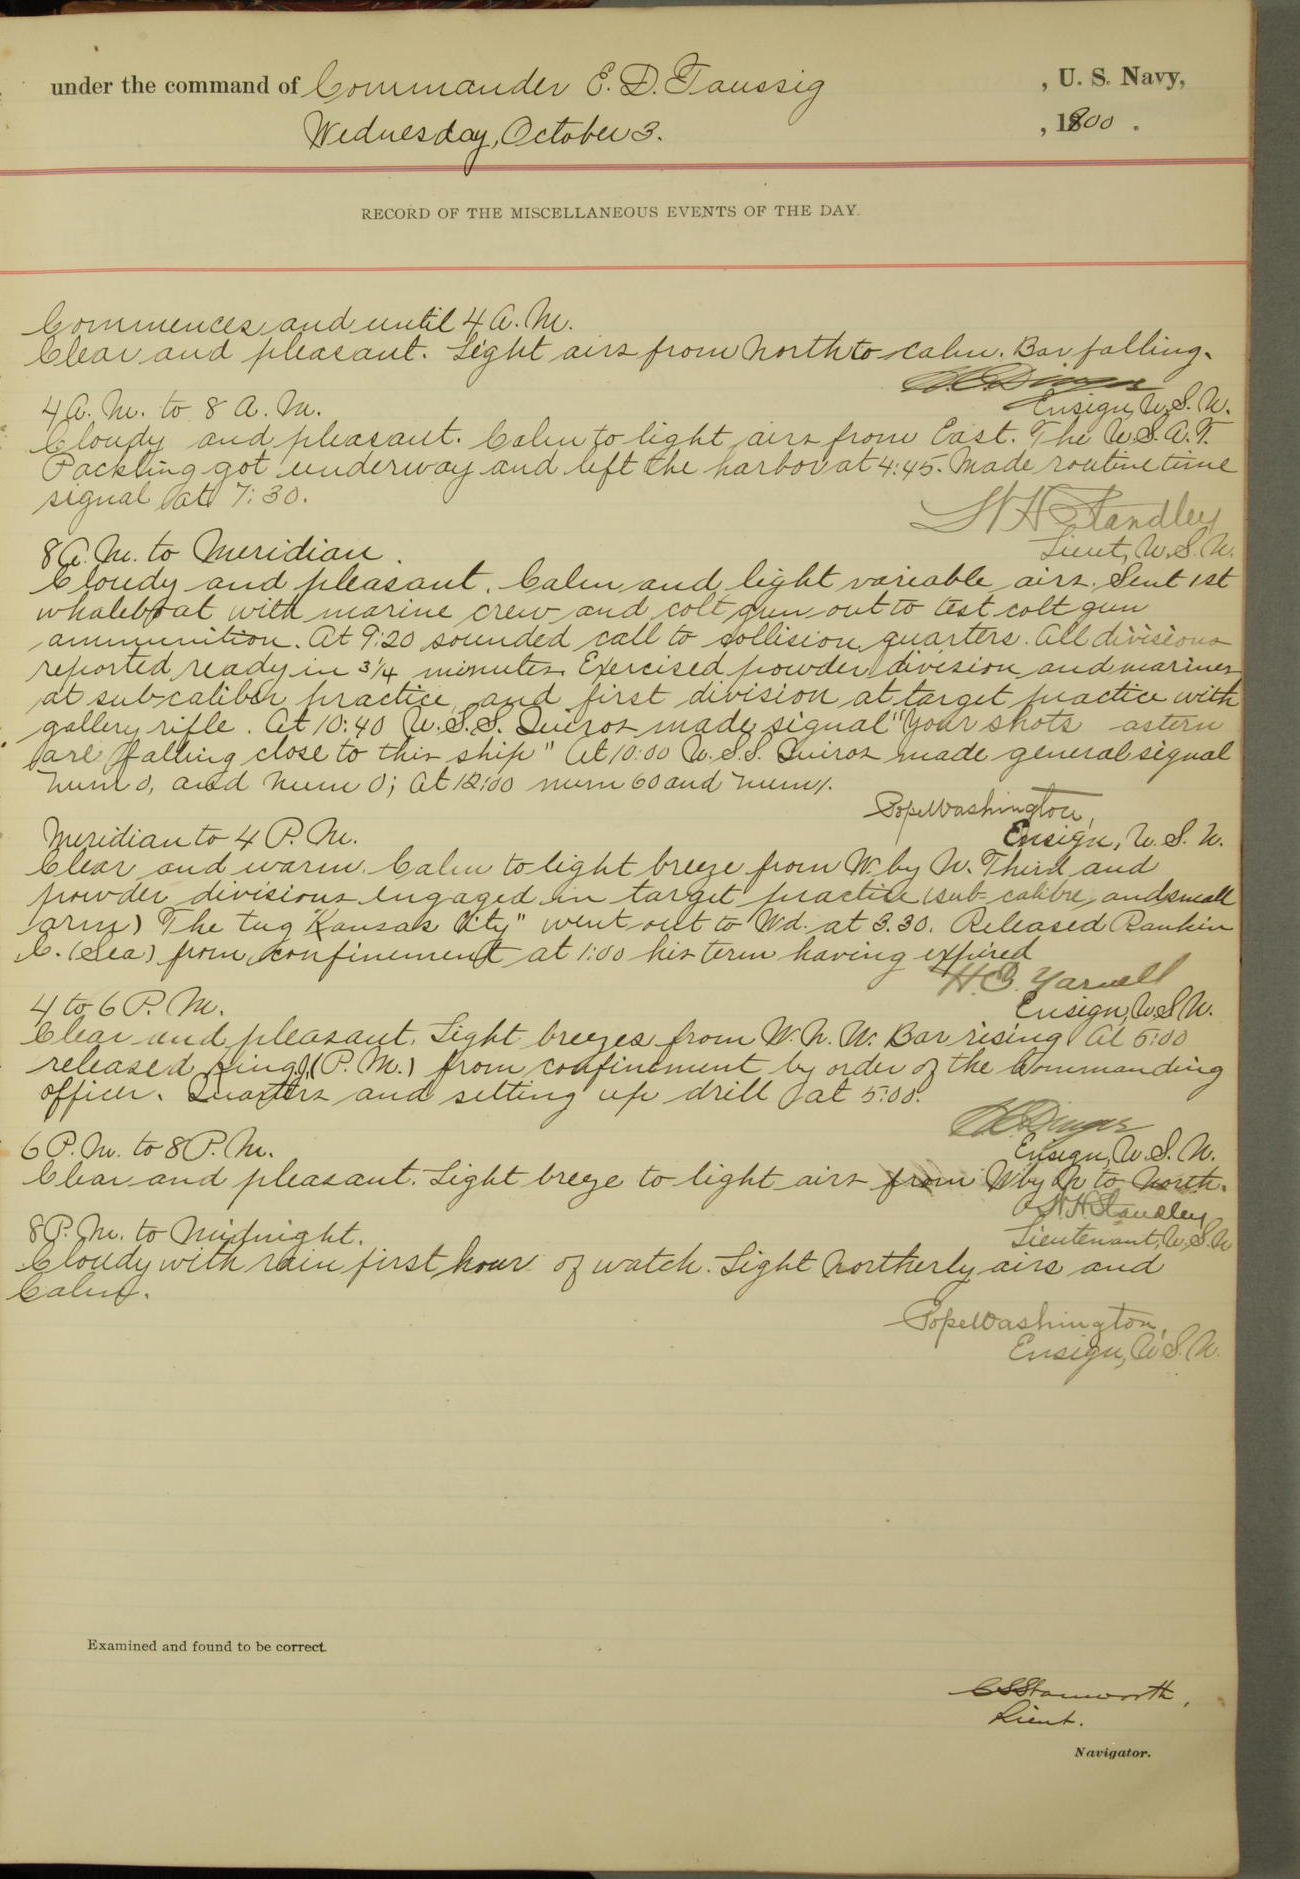 under the command of Commander E. D. Taussig , U. S. Navy,
Wednesday, October 3. , 1900 .
RECORD OF THE MISCELLANEOUS EVENTS OF THE DAY.
Commences and until 4 A. M.
Clear and pleasant. Light airs from North to calm. Bar falling.
Ensign, U. S. N.
4 A. M. to 8 A. M.
Cloudy and pleasant. Calm to light airs from East. The U. S. A. T.
Packling got underway and left the harbor at 4:45. Made routine time
signal at 7:30.
W H Standley
Lieut, U. S. N.
8 A. M. to Meridian.
Cloudy and pleasant. Calm and light variable airs. Sent 1st
whaleboat with marine crew and colt gun out to test colt gun
ammunition. At 9:20 sounded call to collision quarters. All divisions
reported ready in 3 1/4 minutes. Exercised powder division and marines
at sub-caliber practice, and first division at target practice with
gallery rifle. At 10:40 U. S. S. Quiros made signal "Your shots astern
are falling close to this ship" At 10:00 U. S. S. Quiros made general signal
num 0, and num 0; at 12:00 num 60 and num 1.
Pope Washington,
Ensign, U. S. N.
Meridian to 4 P. M.
Clear and warm. Calm to light breeze from W. by N. Third and
powder divisions engaged in target practice (sub-calibre, and small
arm) The tug "Kansas City" went out to Wd. at 3.30. Released Rankin
C. (Sea) from confinement at 1:00 his term having expired
H. E. Yarnell
Ensign, U. S. N.
4 to 6 P. M.
Clear and pleasant. Light breezes from W. N. W. Bar rising At 5:00
released King, J, (P. M.) from confinement by order of the Commanding
officer. Quarters and setting up drill at 5:00.
Ensign, U. S. N.
6 P. M. to 8 P. M.
Clear and pleasant. Light breeze to light airs from W by N to North.
W. H. Standley
Lieutenant, U. S. N
8 P. M. to Midnight.
Cloudy with rain first hour of watch. Light Northerly airs and
Calm.
Pope Washington,
Ensign, U. S. N.
Examined and found to be correct.
C S Stanworth,
Lieut.
Navigator.